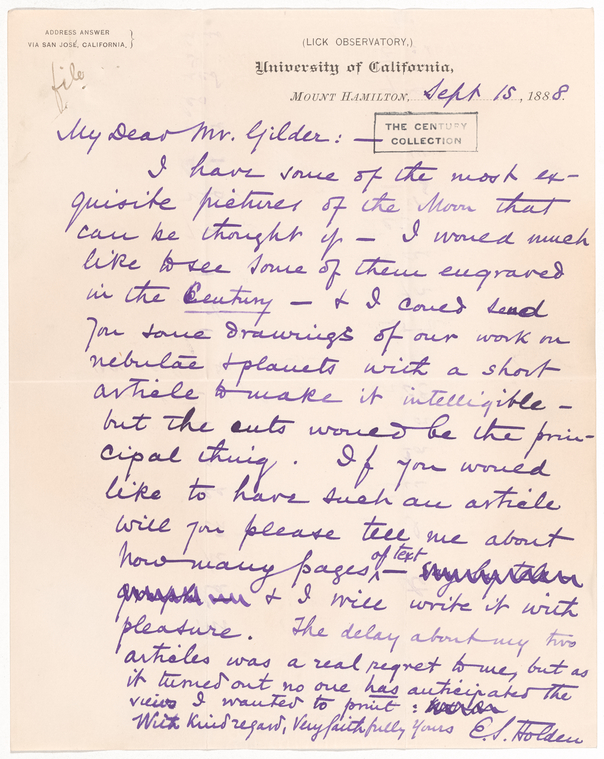 ADDRESS ANSWER
VIA SAN JOSÉ, CALIFORNIA,
(LICK OBSERVATORY,)
University of California,
MOUNT HAMILTON, Sept 15, 1888.
file
My Dear Mr. Gilder: —
THE CENTURY
COLLECTION
I have some of the most ex-
quisite pictures of the Moon that
can be thought of — I would much
like to see some of them engraved
in the Century — & I could send
you some drawings of our work on
nebulae & planets with a short
article to make it intelligible —
but the cuts would be the prin-
cipal thing. If you would
like to have such an article
will you please tell me about
how many pages of text —
& I will write it with
pleasure. The delay about my two
articles was a real regret to me, but as
it turned out no one has anticipated the
views I wanted to print:
With kind regard, Very faithfully Yours E. S. Holden